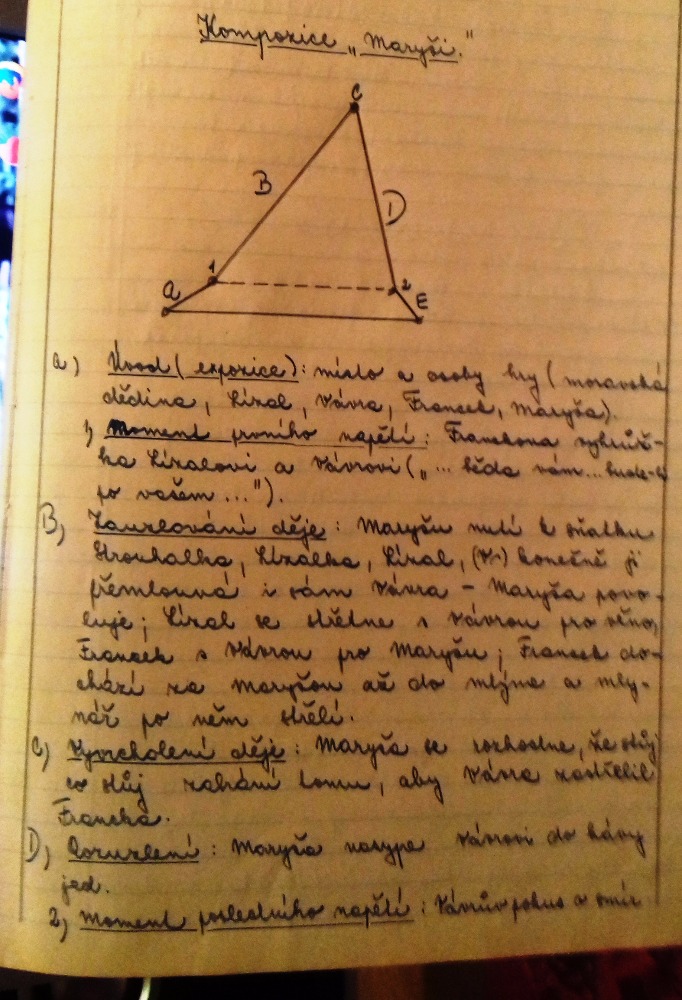 Kompozice „Maryši.“
C
B
D
1
2
a
E
a) Úvod (expozice): místo a osoby hry (moravská
dědina, Lízal, Vávra, Francek, Maryša).
1) Moment prvního napětí: Franckova výhrůž-
ka Lízalovi a Vávrovi („... běda vám... bude-li
po vašem ...“).
B) Zauzlování děje: Maryšu nutí k sňatku
Strouhalka, Lízalka, Lízal, konečně ji
přemlouvá i sám Vávra - Maryša povo-
luje; Lízal se střetne s Vávrou pro věno,
Francek s Vávrou pro Maryšu; Francek do-
chází za Maryšou až do mlýna a mly-
nář po něm střelí.
C) Vyvrcholení děje: Maryša se rozhodne, že stůj
co stůj zabrání tomu, aby Vávra zastřelil
Francka.
D) Rozuzlení: Maryša nasype Vávrovi do kávy
jed.
2) Moment posledního napětí: Vávrův pokus o smír